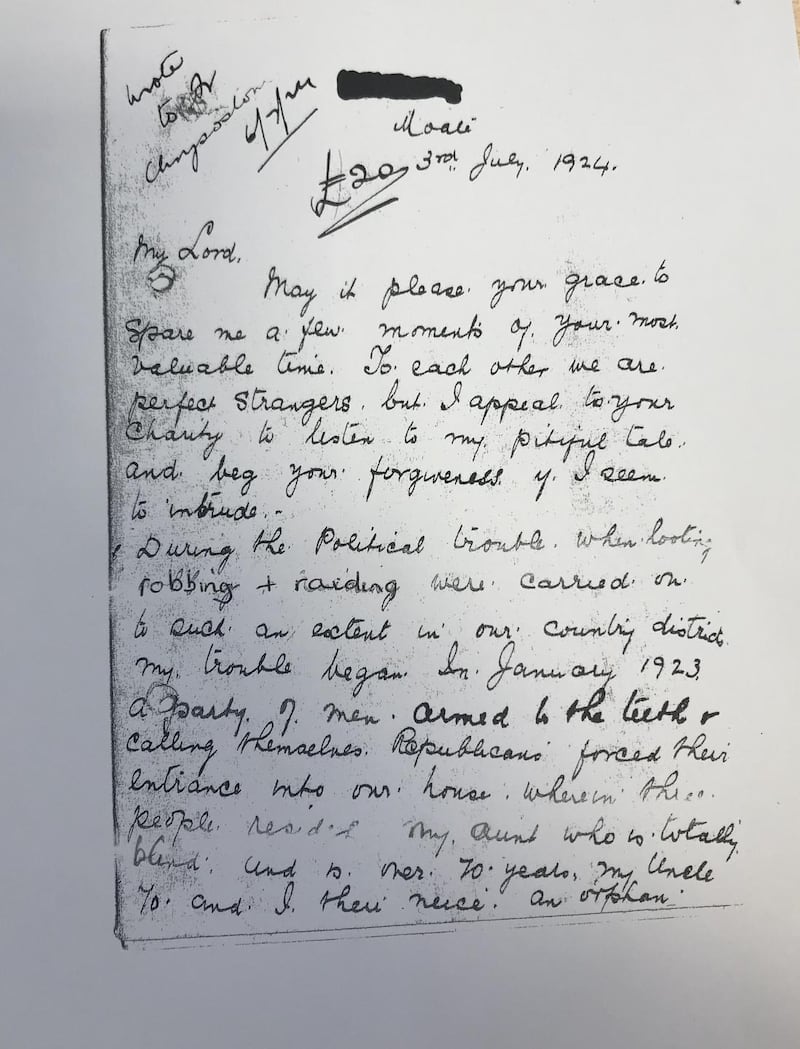 Wrote
to Fr
Chrysostom
6/7/24
Moate
£20 3rd July, 1924.
My Lord,
May it please your grace to
spare me a few moments of your most
valuable time. To each other we are
perfect strangers, but I appeal to your
Charity to listen to my pitiful tale
and beg your forgiveness if I seem
to intrude. -
During the Political trouble when looting
robbing + raiding were carried on
to such an extent in our country district
my trouble began. In January 1923
a party of men armed to the teeth &
calling themselves Republicans forced their
entrance into our house wherein three
people resided my aunt who is totally
blind, and is over 70 years, my Uncle
70 and I their neice an orphan